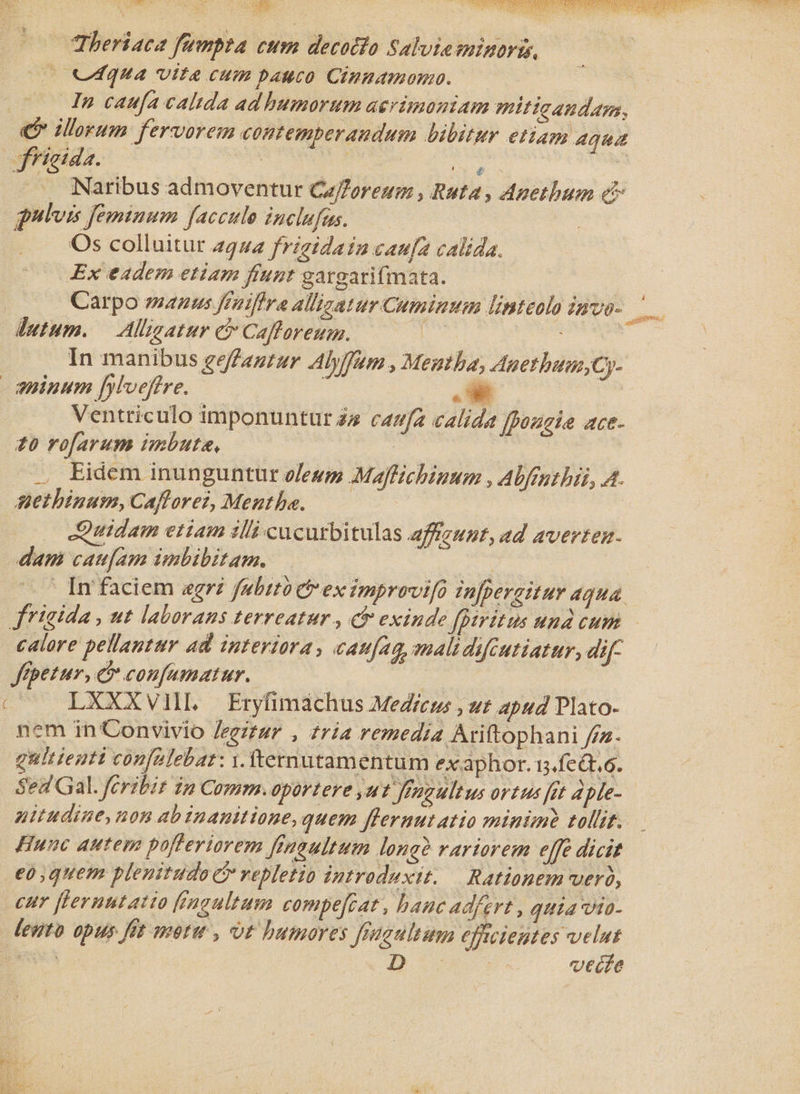 Theriaca ſumpta cum decocto Salviæ minoris,
Aqua vitæ cum pauco Cinnamomo.
In cauſa calida ad humorum acrimoniam mitigandam,
& illorum fervorem contemperandum bibitur etiam aqua
frigida.
Naribus admoventur Caſtoreum, Ruta, Anethum &
pulvis ſeminum ſacculo incluſus.
Os colluitur aqua frigida in cauſa calida.
Ex eadem etiam fiunt gargariſmata.
Carpo manus ſiniſtræ alligatur Cuminum linteolo invo-
lutum. Alligatur & Caſtoreum.
In manibus geſtantur Alyſſum, Mentha, Anethum, Cy-
minum ſylveſtre.
Ventriculo imponuntur in cauſa calida ſpongiæ ace-
to roſarum imbutæ.
Eidem inunguntur oleum Maſtichinum, Abſinthii, A-
nethinum, Caſtorei, Menthæ.
Quidam etiam illi cucurbitulas affigunt, ad averten-
dam cauſam imbibitam.
In faciem ægri ſubitò & ex improviſo inſpergitur aqua
frigida, ut laborans terreatur, & exinde ſpiritus unà cum
calore pellantur ad interiora, cauſaq; mali diſcutiatur, diſ-
ſipetur, & conſumatur.
LXXXVIII. Eryſimáchus Medicus, ut apud Plato-
nem in Convivio legitur, tria remedia Ariſtophani ſin-
gultienti conſulebat: 1. ſternutamentum ex aphor. 13. ſect. 6.
Sed Gal. ſcribit in Comm. oportere, ut ſingultus ortus ſit à ple-
nitudine, non ab inanitione, quem ſternutatio minimè tollit.
Hunc autem poſteriorem ſingultum longè rariorem eſſe dicit
eo, quem plenitudo & repletio introduxit. Rationem verò,
cur ſternutatio ſingultum compeſcat, hanc adfert, quia vio-
lento opus ſit motu, ut humores ſingultum efficientes velut
D vecte